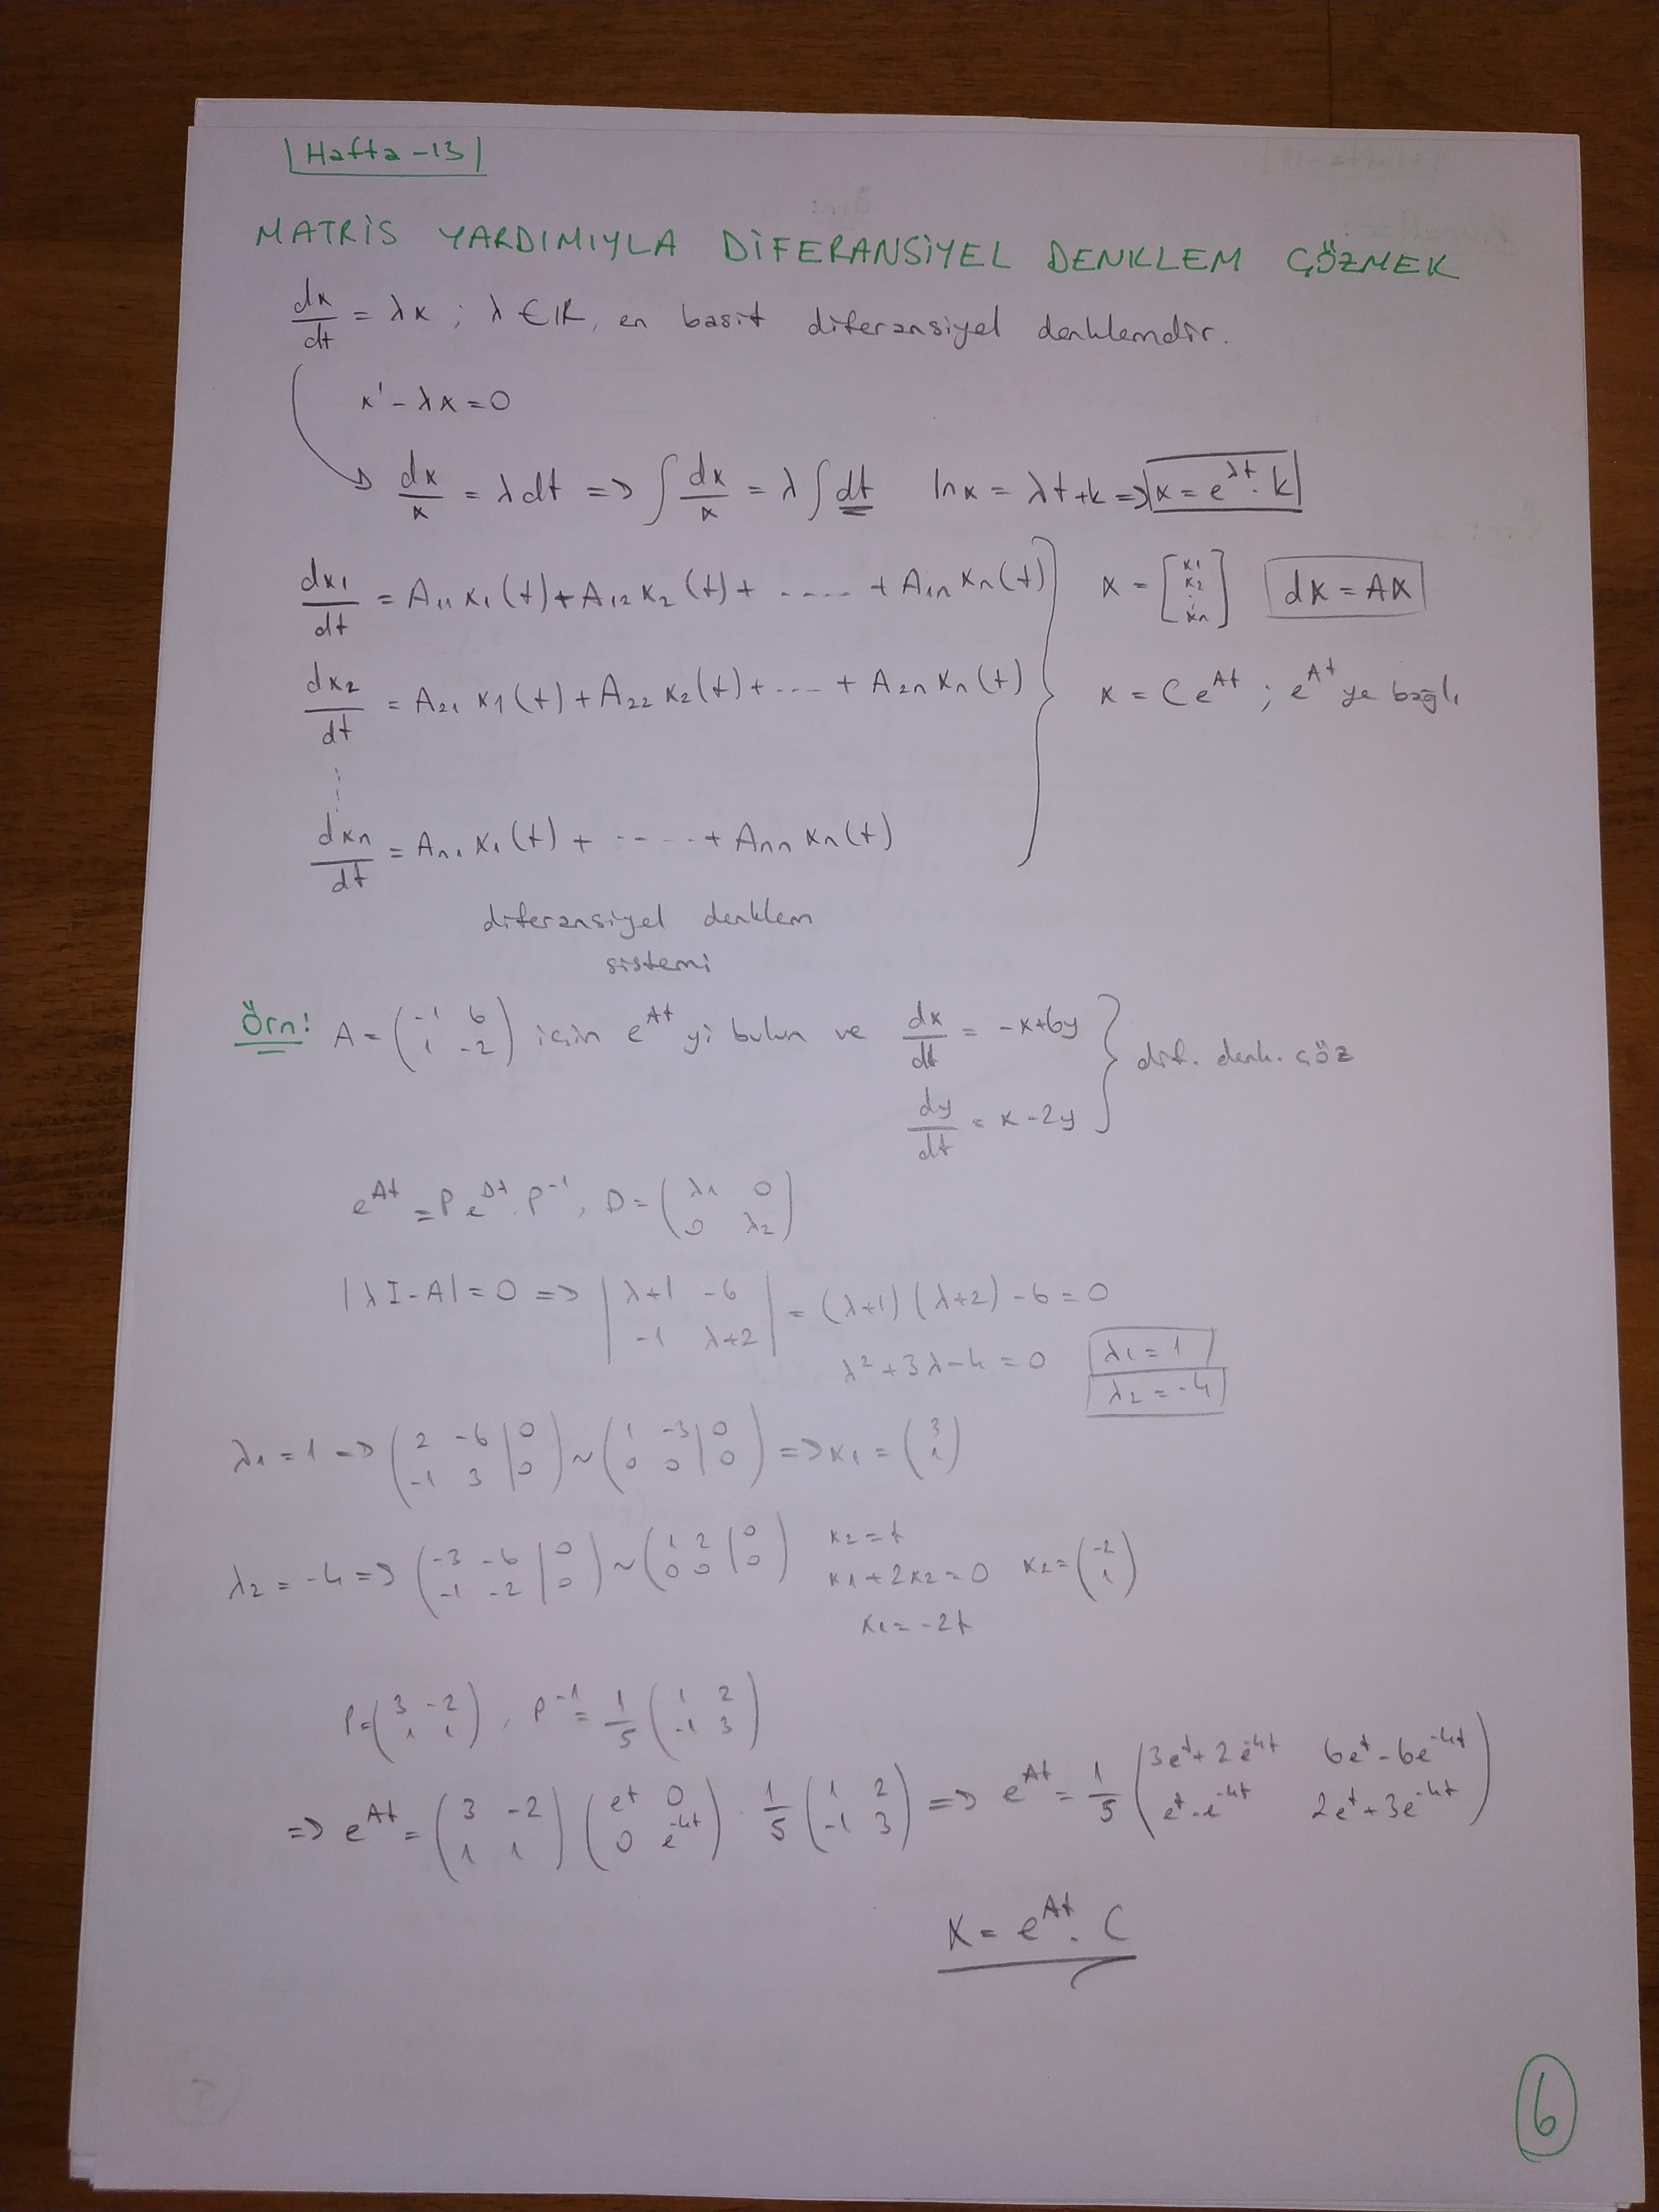 Hafta-13
MATRİS YARDIMIYLA DİFERANSİYEL DENKLEM ÇÖZMEK
dx/dt = λx ; λ∈ℝ, en basit diferansiyel denklemdir.
x' - λx = 0
dx/x = λdt => ∫dx/x = λ∫dt lnx = λt+k => x = e^λt . k
dx1/dt = A11 x1(t) + A12 x2(t) + ---- + A1n xn(t) x = [x1 x2 : xn] dx = Ax
dx2/dt = A21 x1(t) + A22 x2(t) + ---- + A2n xn(t) x = Ce^At ; e^At ye bağlı
....
dxn/dt = An1 x1(t) + ---- + Ann xn(t)
diferansiyel denklem
sistemi
Örn: A = (-1 6 / 1 -2) için e^At yi bulun ve dx/dt = -x+6y dif. denk. çöz
dy/dt = x-2y
e^At = P e^Dt . P^-1, D = (λ1 0 / 0 λ2)
|λI-A| = 0 => |λ+1 -6 / -1 λ+2| = (λ+1)(λ+2)-6 = 0
λ²+3λ-4 = 0 λ1 = 1 λ2 = -4
λ1 = 1 => (2 -6 | 0 / -1 3 | 0) ~ (1 -3 | 0 / 0 0 | 0) => x1 = (3 / 1)
λ2 = -4 => (-3 -6 | 0 / -1 -2 | 0) ~ (1 2 | 0 / 0 0 | 0) x2 = t
x1+2x2 = 0 x2 = (-2 / 1)
x1 = -2t
P = (3 -2 / 1 1), P^-1 = 1/5 (1 2 / -1 3)
=> e^At = (3 -2 / 1 1) (e^t 0 / 0 e^-4t) . 1/5 (1 2 / -1 3) => e^At = 1/5 (3e^t+2e^-4t 6e^t-6e^-4t / e^t-e^-4t 2e^t+3e^-4t)
X = e^At . C
6